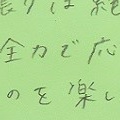 長りは純
全力で応
のを楽し